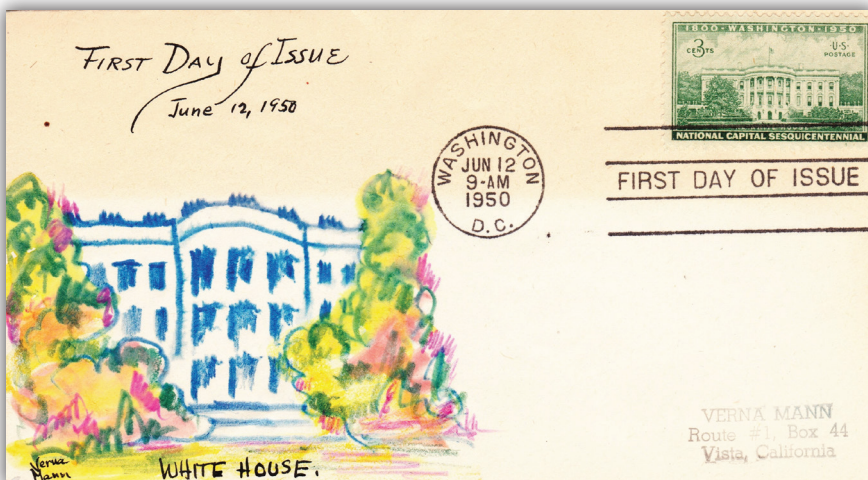 First Day of Issue
June 12, 1950
1800 - WASHINGTON - 1950
3
CENTS
U·S·
POSTAGE
NATIONAL CAPITAL SESQUICENTENNIAL
WASHINGTON
JUN 12
9-AM
1950
D.C.
FIRST DAY OF ISSUE
VERNA MANN
Route #1, Box 44
Vista, California
Verna
Mann
WHITE HOUSE.